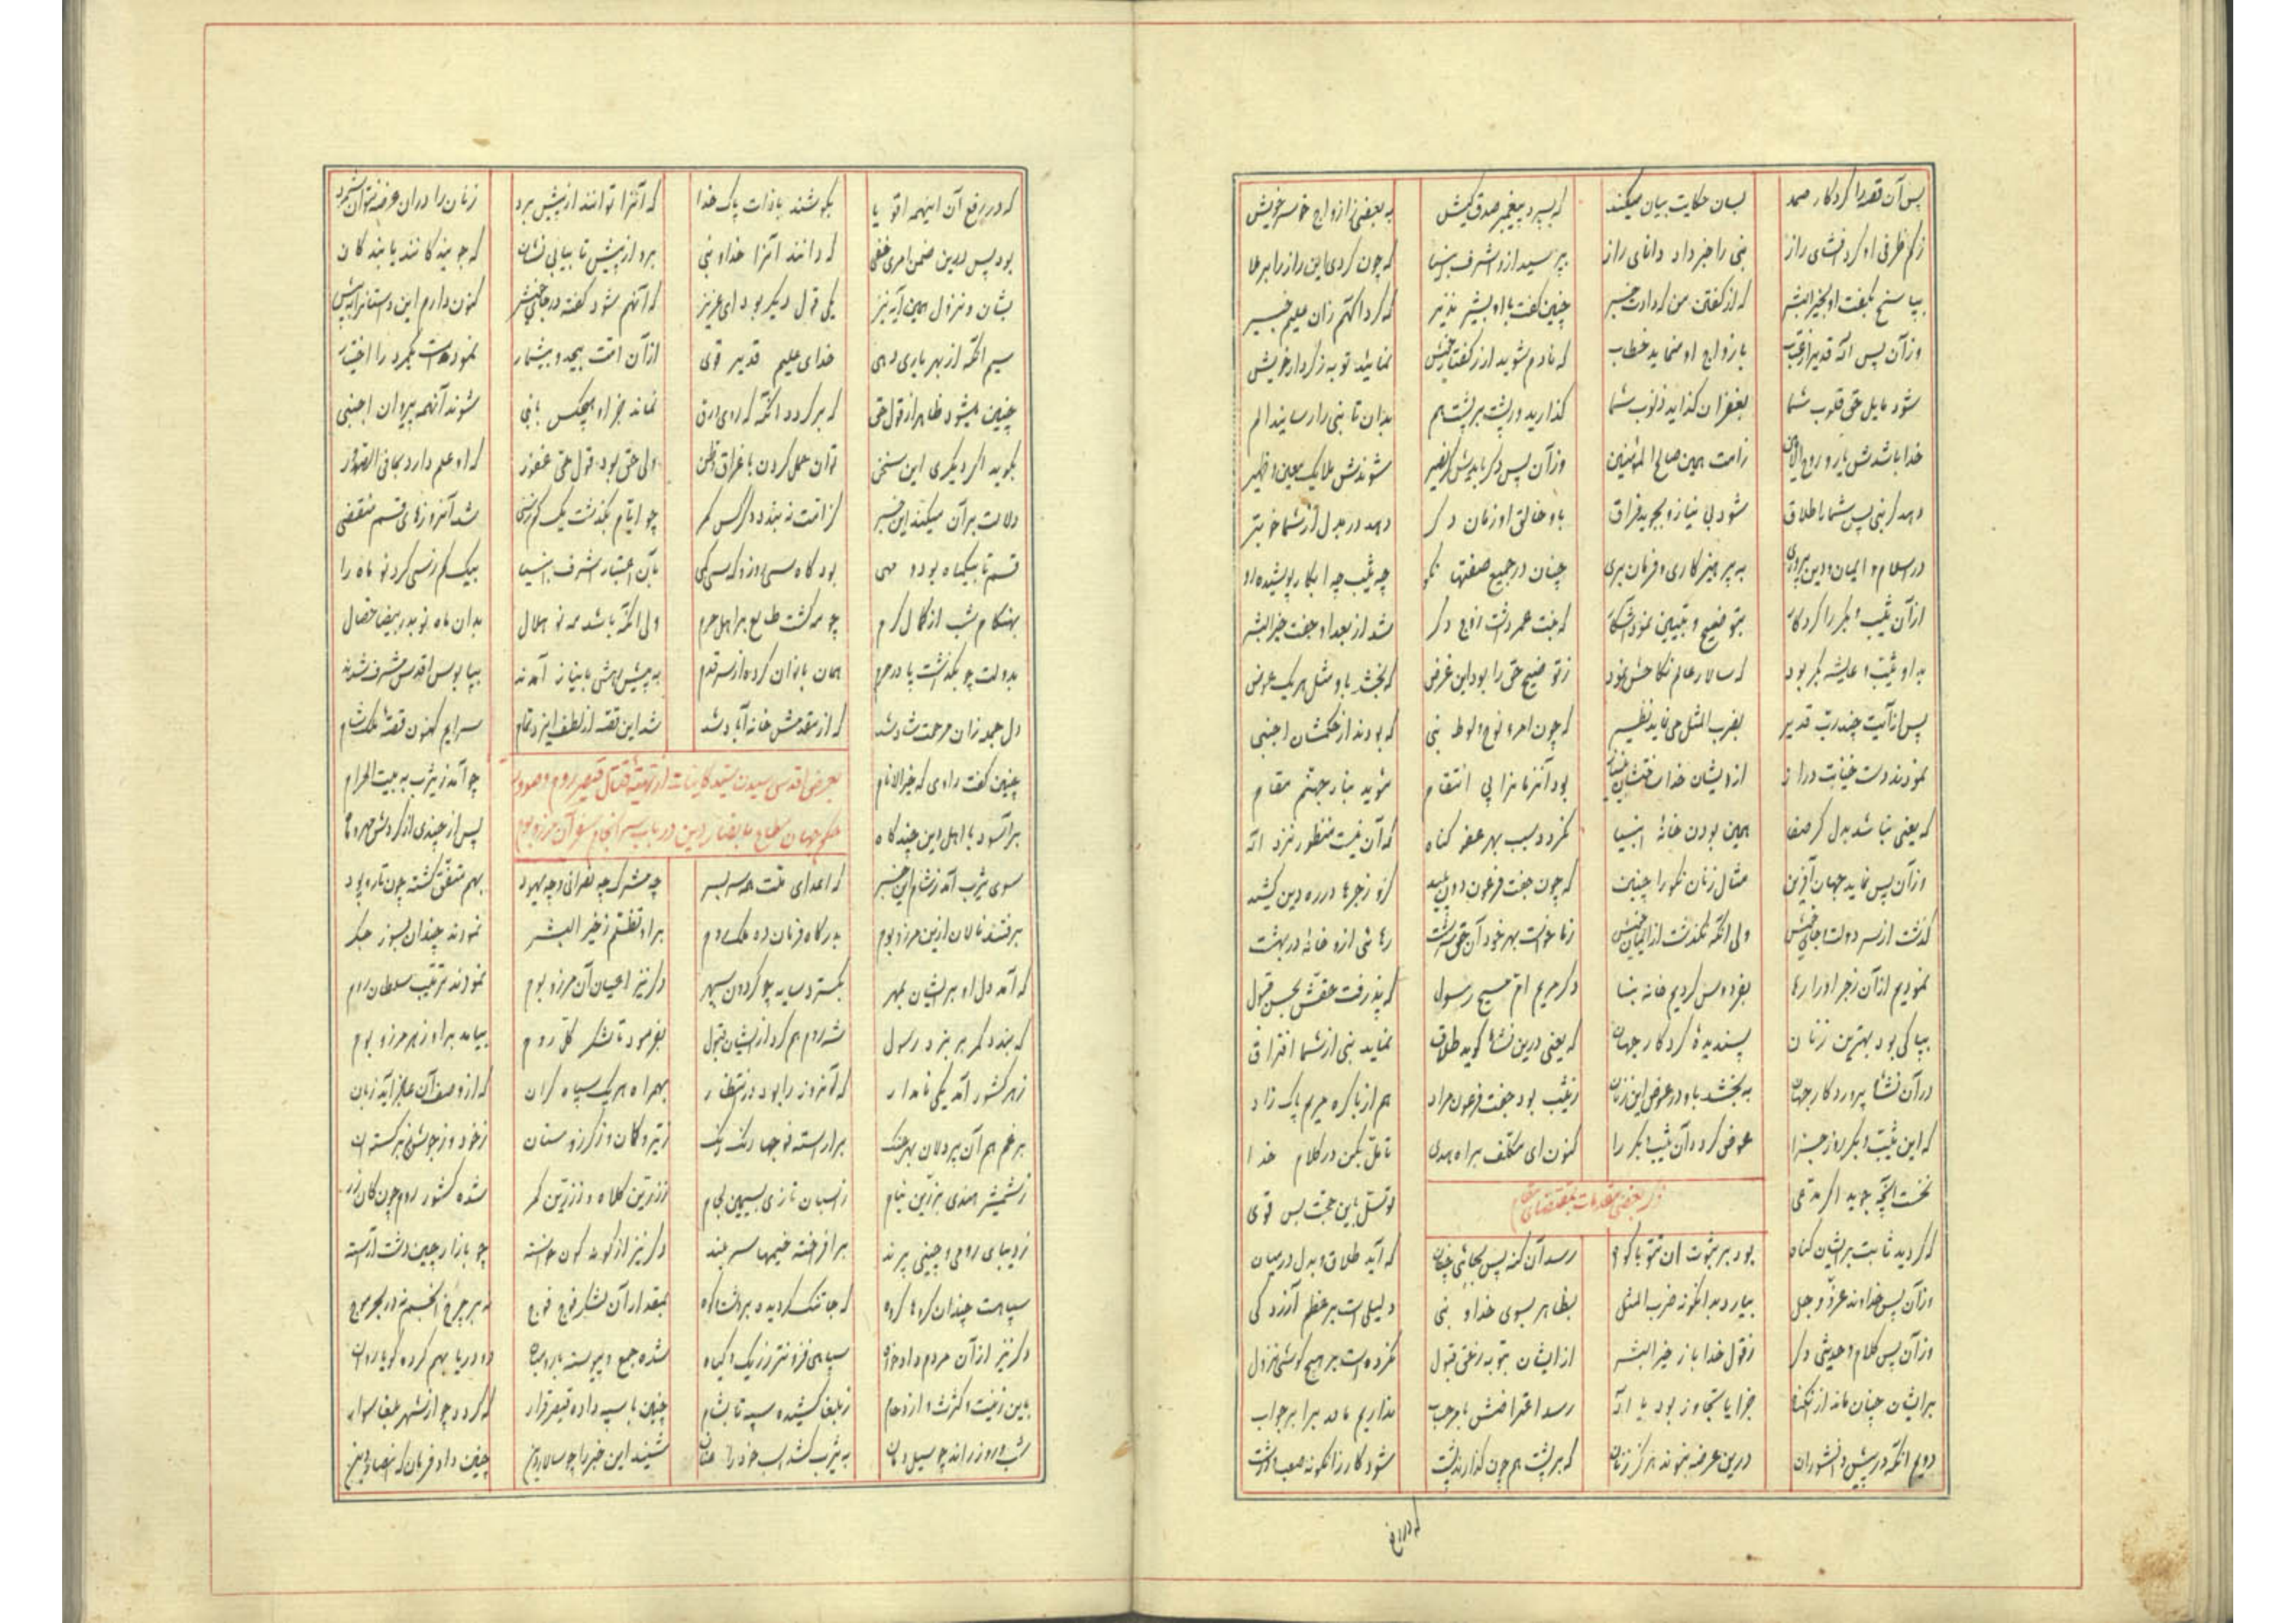 پس آن قصه را کردکار صمد بسان حکایت بیان میکند که بسپرد پیغمبر صدق کیش به بعضی ز ازواج خود سر خویش
ز کم ظرفی او کرد افشای راز نبی را خبر داد دانای راز بپرسید ازو اشرف انبیا که چون کردی این راز را برملا
بپاسخ بگفت او بخیر البشر که از گفتن من که دادت خبر چنین گفت با او بشیر نذیر که کرد آگهم زان علیم خبیر
وزآن پس اله قدیر از عتاب بازواج او مینماید خطاب که نادم شوید ار ز گفتار خویش نمائید توبه ز کردار خویش
شود مایل حق قلوب شما بغفران گذاید ذنوب شما گذارید ور پشت بر پشت هم بدان تا نبی را رسانید الم
خدا باشدش یار و روح الامین ز امت همین صالح المؤمنین وزآن پس دگر بایدش گر نصیر شوندش ملایک معین و ظهیر
دهد گر نبی پس شما را طلاق شود بی نیاز و بجوید فراق باو خالق او زنان دگر دهد در بدل از شما خوبتر
در اسلام و ایمان و دین پروری به پرهیزکاری و فرمان بری چنان در جمیع صفتها نکو چه ثیب چه ابکار پوشیده رو
از آن ثیب و بکر را کردکار بتوضیح و تبیین نمود آشکار که بنت عمر داشت زوج دگر شد از بعد او جفت خیر البشر
بد او ثیب و عایشه بکر بود که سالار عالم نکاحش نمود ز توضیح حق را بود این غرض که بخشد باو مثل هر یک عوض
پس از آیت چند رب قدیر بضرب المثل می نماید نظیر که چون امرء نوح و لوط نبی که بودند از حکمشان اجنبی
نمودند دست خیانت دراز بود آنزنانرا پی انتقام شوید بنار جهنم مقام
که یعنی نباشد بدل گر صفا همین بودن خانهٔ انبیا نگردد سبب بهر عفو گناه که آن نیست منظور نزد اله
وزآن پس نماید جهان آفرین مثال زنان نکو را چنین که چون جفت فرعون دون پلید کزو زجرها در ره دین کشید
گذشت از سر دولت و جاه خویش ولی آنکه نگذشت از ایمان خویش رهائی ازو خانه در بهشت
نمودیم از آن زجر او را رها بفردوس کردیم خانه بنا دگر مریم ام مسیح رسول که پذرفت عفتش بحسن قبول
بپاکی بود بهترین زنان پسندیدهٔ کردکار جهان که یعنی درین نشاء گوید طلاق نماید نبی از شما افتراق
در آن نشاء پروردکار جهان به بخشد باو در عوض این زنان ز ثیب بود جفت فرعون مراد هم از باکره مریم پاک زاد
که این ثیب و بکر روز جزا عوض گردد آن ثیب و بکر را کنون ای مکلف براه هدی تامل بکن در کلام خدا
نخست آنچه جوید اگر مدعی توسل باین حجت بس قوی
که گردید ثابت بر ایشان گناه رسد آن کنه پس بجائی چنان که آید طلاق و بدل درمیان
وزآن پس خداوند عزّ و جل بیارد بدانگونه ضرب المثل بظاهر بسوی خدا و نبی دلیلی است بر عظم آزردگی
وزآن پس کلام و حدیثی دگر ز قول خدا یا ز خیر البشر از ایشان بتوبه ز حق قبول نکرده است بر هیچ گوشی نزول
رسد اعتراضش نداریم ما در برابر جواب
دویم آنکه در پیش دانشوران درین عرصه نبوند هرگز زنان که بر پشت هم چون گذارند پشت شود کار زانگونه صعب و درشت
که در رفع
که در رفع آن اینهمه اقویا بکوشند با ذات پاک خدا که آنرا توانند از پیش برد زنان را در آن عرصه نتوان شمرد
بود پس درین ضمن امری خفی که دانند آنرا خدا و نبی برو از پیش تا بیابی نشان که جویندگانند یابندگان
بشان و نزول همین آیه نیز یکی قول دیگر بود ای عزیز که آنهم شود گفته در جای خویش کنون دارم این داستانرا به پیش
سیم آنکه از بهر یاری دهی خدای علیم قدیر قوی از آن امت بیحد و بیشمار نموده است یکمرد را اختیار
چنین میشود ظاهر از قول حق که برگردد آنکه که روی ورق نماند جز او هیچکس با نبی شوند آنهمه پیروان اجنبی
بگوید اگر دیگری این سخن توان حمل کردن باغراق و ظن ولی حق بود قول حق غفور که او علم دارد بمافی الصدور
دلالت بر آن میکند این خبر کز امت نه بندد دگر کس کمر چو ایام بگذشت یک کم ز سی شد آنروزهای قسم منقضی
قسم تا بیکماه بود و مهی بود گاه سی روز و که سی کمی بآن اعتبار اشرف انبیا بیک کم ز سی کرد نو ماه را
بهنگام شب از کمال کرم چو مه گشت طالع بر اهل حرم ولی آنکه باشد مه نو هلال بدان ماه نو بدر بیضا خصال
بدولت چو بگذشت پا در حرم همان بانوان کرده از سر قدم به پیشش همی با نیاز آمدند بپا بوس اقدس مشرف شدند
دل جمله زان مرحمت شاد شد که از مقدمش خانه آباد شد شد این قصه از لطف ایزد تمام سرایم کنون قصهٔ ملک شام
بعرض اقدس رسیدن سید کاینات از تهیّه قتال قیصر روم و صدور
چنین گفت راوی که خیر الانام چو آمد ز یثرب به بیت الحرام
حکم جهان مطاع بانصار دین در باب سرانجام سفر آن مرز و بوم
برآسود با اهل دین چند گاه پس از چندی از گردش مهر و ماه
سوی یثرب آمد ز شام این خبر که اعدای ملت همه سر بسر چه مشرک چه نصرانی و چه یهود بهم متفق گشته چون تار و پود
برفتند نالان ازین مرز و بوم بدرگاه فرمان ده ملک روم برای تظلم ز خیر البشر نمودند چندان بسوز جگر
که آمد دل او بر ایشان بمهر بگسترد سایه چو گردون سپهر دگر نیز اعیان آن مرز و بوم نمودند ترغیب سلطان روم
که بندد کمر بر نبرد رسول شه روم هم کرد از ایشان قبول بفرمود تا لشکر کل روم بیامد بر او ز هر مرز و بوم
ز هر کشور آمد یکی نامدار بهمراه هر یک سپاه گران که از وصف آن عاجز آید زبان
برزم هم آن پردلان بهر جنگ برآراسته فوجها رنگ رنگ ز تیر و کمان و ز گرز و سنان ز خود و ز جوشن ز برگستوان
ز شمشیر هندی بزرین نیام ز اسبان تازی بسیمین لجام ز زرین کلاه و ز زرین کمر شده کشور روم چون کان زر
ز دیبای رومی و چینی پرند برافراخته خیمها سربلند دگر نیز از گونه گون خواسته چو بازار چین دشت آراسته
سپاهست چندان گروها گروه که جا تنگ گردیده بر دشت و کوه بمقدار آن لشکر فوج فوج نه بر چرخ انجم نه در بحر موج
دگر نیز از آن مردم دادخواه سپاهی فزونتر ز ریک و گیاه شده جمع و پیوسته با روسیاه دو دریا بهم کرده گویا روان
باین زینت و کثرت و ازدحام ز بلغا کشیده سپه تا بشام چنین با سپه داده قیصر قرار که گردد چو از شهر بلغا سوار
شب و روز راند چو سیل دمان به یثرب کشد اسب خود را عنان شنید این خبر را چو سالار دین چنین داد فرمان که انصار دین